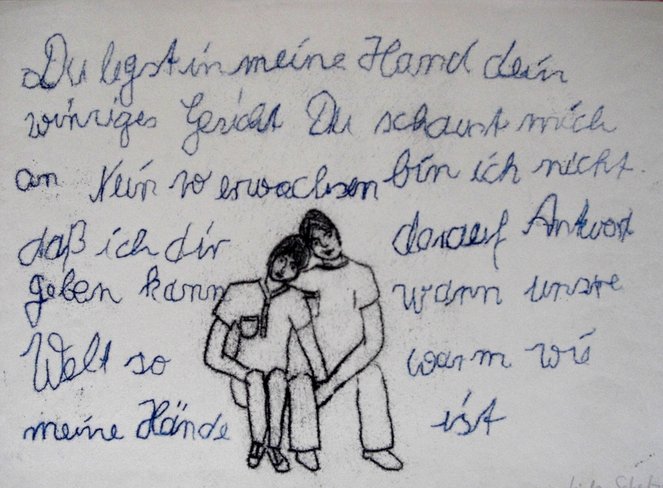 Du legst in meine Hand dein
winziges Gesicht Du schaust mich
an Nein so erwachsen bin ich nicht.
daß ich dir darauf Antwort
geben kann wann unsre
Welt so warm wie
meine Hände ist